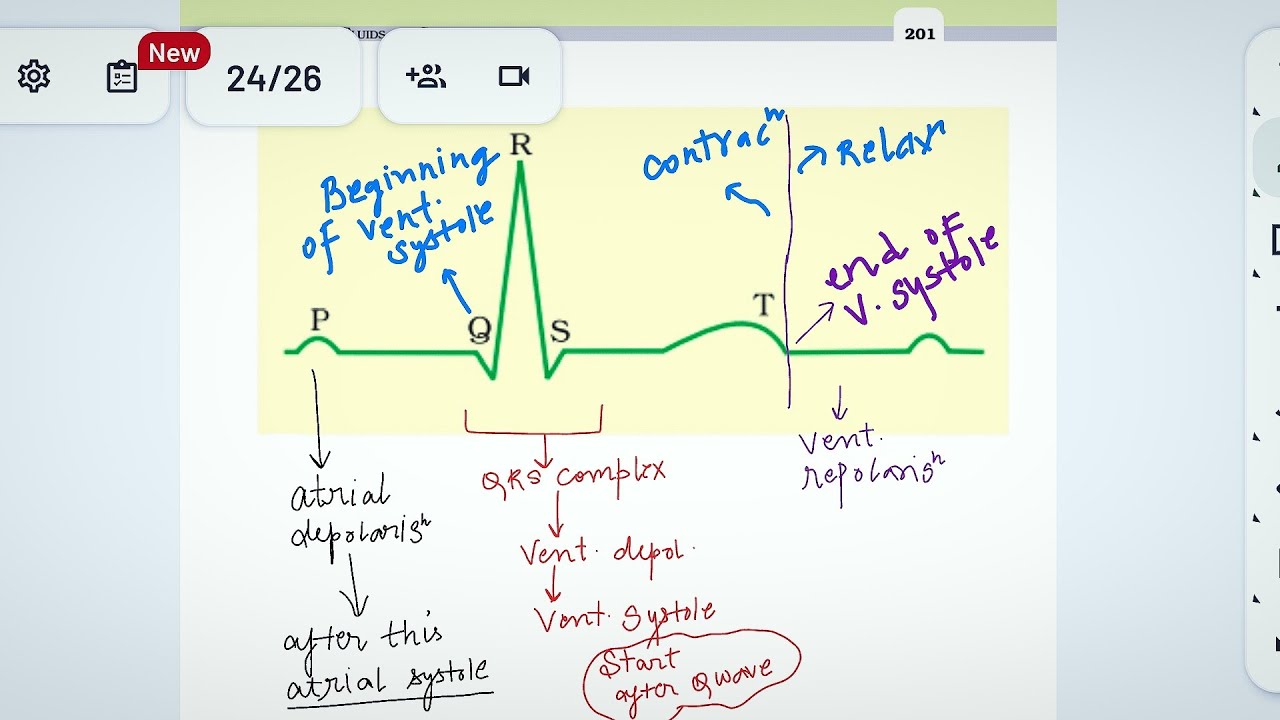 New
24/26
UIDS
201
contracⁿ
Relaxⁿ
Beginning
of vent.
systole
R
end of
V. systole
P
Q
S
T
QRS complex
Vent. depol.
Vent. systole
Start
after Q wave
Vent.
repolarisⁿ
atrial
depolarisⁿ
after this
atrial systole